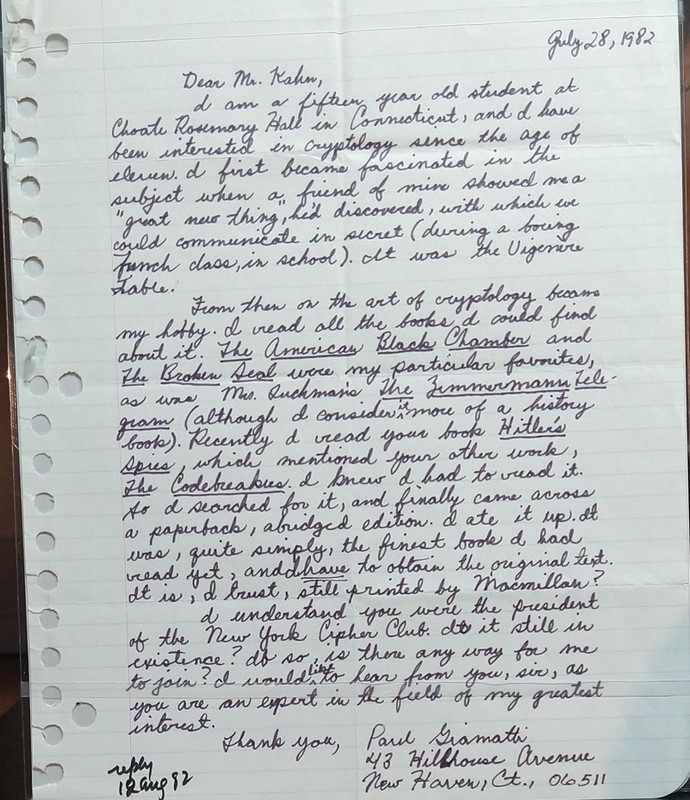 July 28, 1982
Dear Mr. Kahn,
I am a fifteen year old student at
Choate Rosemary Hall in Connecticut, and I have
been interested in cryptology since the age of
eleven. I first became fascinated in the
subject when a friend of mine showed me a
"great new thing", he'd discovered, with which we
could communicate in secret (during a boring
French class, in school). It was the Vigenère
Table.
From then on the art of cryptology became
my hobby. I read all the books I could find
about it. The American Black Chamber and
The Broken Seal were my particular favorites,
as was Mrs. Tuchman's The Zimmermann Tele-
gram (although I consider it more of a history
book). Recently I read your book Hitler's
Spies, which mentioned your other work,
The Codebreakers. I knew I had to read it.
So I searched for it, and finally came across
a paperback, abridged edition. I ate it up. It
was, quite simply, the finest book I had
read yet, and I have to obtain the original text.
It is, I trust, still printed by Macmillan?
I understand you were the president
of the New York Cipher Club. Is it still in
existence? If so, is there any way for me
to join? I would like to hear from you, sir, as
you are an expert in the field of my greatest
interest.
Thank you,
Paul Giamatti
43 Hillhouse Avenue
New Haven, Ct., 06511
reply
12 Aug 82